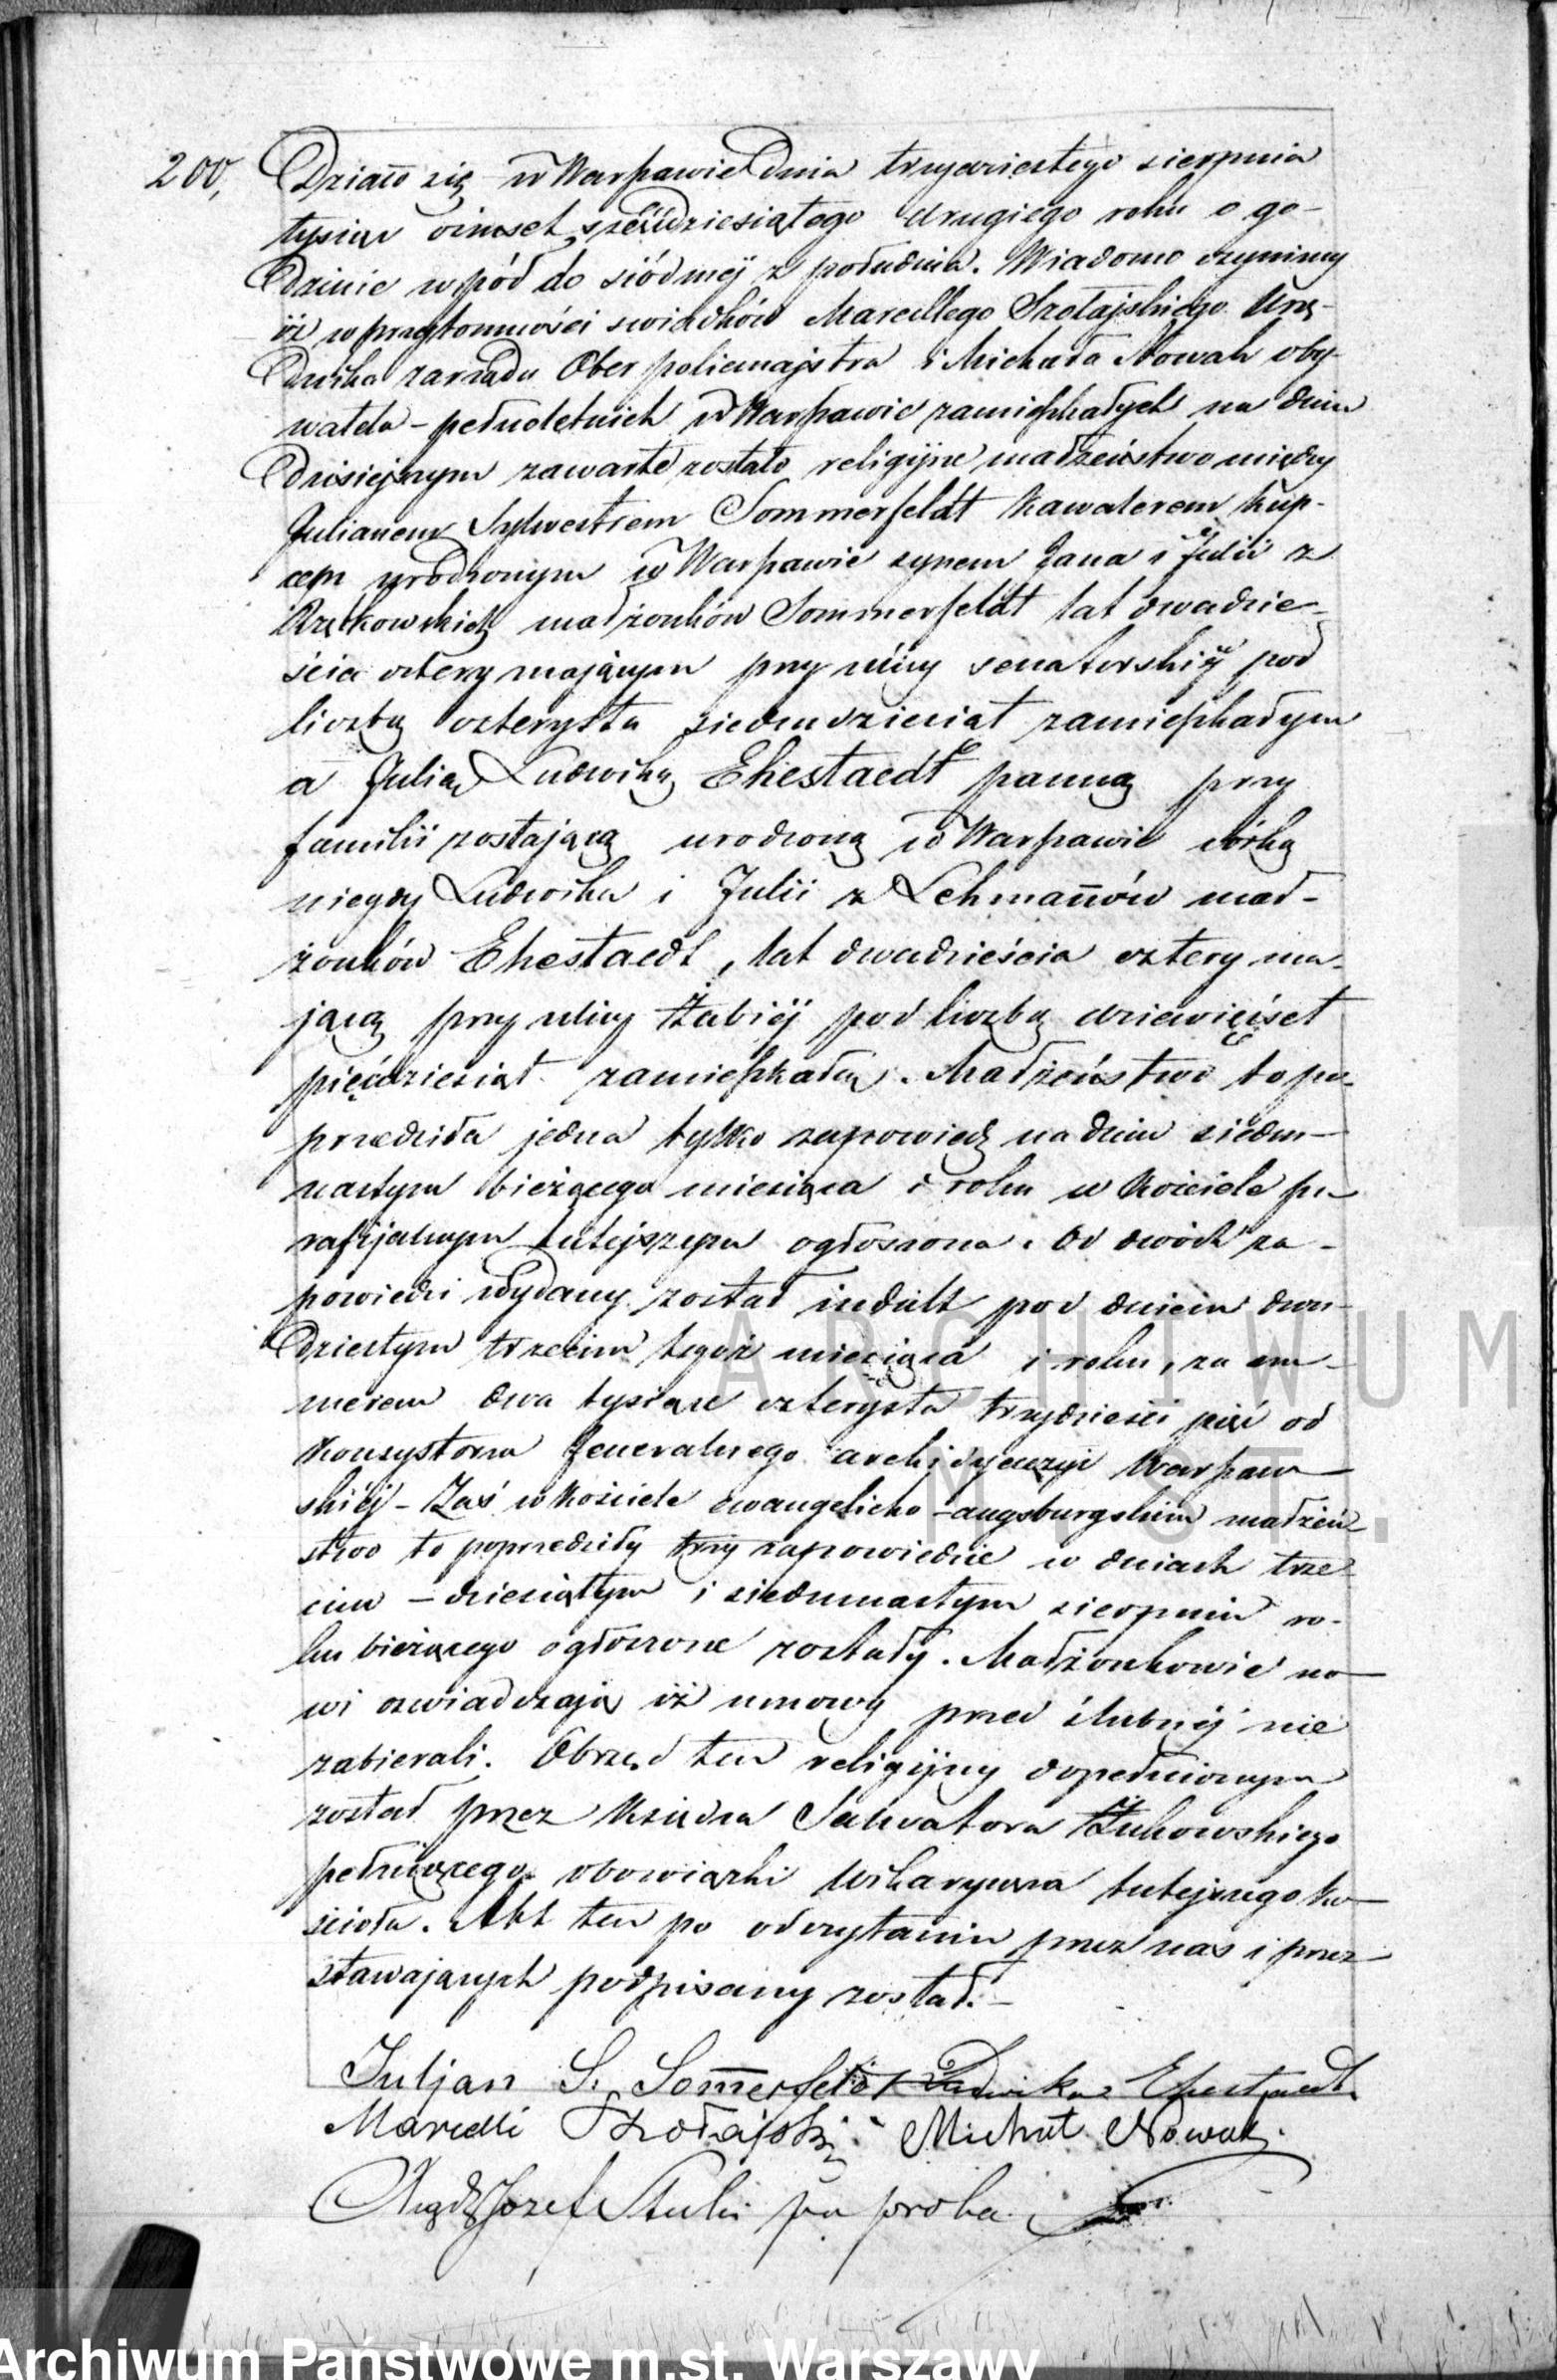 200, Działo się w Warszawie Dnia trzydziestego sierpnia
tysiąc ośmset sześćdziesiątego drugiego roku o go-
dzinie w pół do siódmej z południa. Wiadomo czynimy
iż w przytomności świadków Marcellego Szołajskiego Urzę-
dnika zarządu Ober policmajstra i Michała Nowak oby-
watela – pełnoletnich w Warszawie zamieszkałych na dniu
dzisiejszym zawarte zostało religijne małżeństwo między
Julianem Sylwestrem Sommerfeldt kawalerem kup-
cem urodzonym w Warszawie synem Jana i Julii z
małżonków Sommerfeldt lat dwadzie-
ścia cztery mającym przy ulicy senatorskiej pod
liczbą czterysta siedmdziesiąt zamieszkałym
a Julią Ludwiką Ehestaedt panną przy
familii zostającą urodzoną w Warszawie córką
niegdy Ludwika i Julii z Lehmannów mał-
żonków Ehestaedt, lat dwadzieścia cztery ma-
jącą przy ulicy Żabiej pod liczbą dziewięćset
pięćdziesiąt zamieszkałą. Małżeństwo to po-
przedziła jedna tylko zapowiedź na dniu siedm-
nastym bieżącego miesiąca i roku w kościele pa-
rafijalnym tutejszym ogłoszona. Od dwóch za-
powiedzi wydany został indult pod dniem dwu-
dziestym trzecim tegoż miesiąca i roku, za nu-
merem dwa tysiące czterysta trzydzieści pięć od
Konsystorza Jeneralnego archidyecezyi Warszaw-
skiej – Zaś w kościele ewangelicko-augsburgskim małżeń-
stwo to poprzedziły trzy zapowiedzie w dniach trze-
cim – dziesiątym i siedmnastym sierpnia ro-
ku bieżącego ogłoszone zostały. Małżonkowie no-
wi oświadczają iż umowy przed ślubnej nie
zabierali. Obrzęd ten religijny dopełnionym
został przez Księdza Salwatora Żukowskiego
pełniącego obowiązki Wikaryusza tutejszego ko-
ścioła. Akt ten po odczytaniu przez nas i przez
stawających podpisany został. –
Juljan S. Sommerfeldt Ludwika Ehestaedt
Marcelli Szołajski Michał Nowak.
Józef pro
ARCHIWUM
M.ST.
Archiwum Państwowe m.st. Warszawy